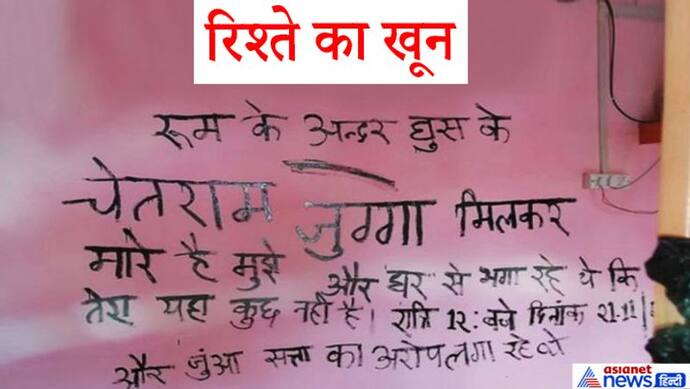 रिश्ते का खून
रूम के अन्दर घुस के
चेतराम जुग्गा मिलकर
मारे है मुझे और घर से भगा रहे थे कि
तेरा यहा कुछ नहीं है। रात्रि 12: बजे दिनांक 21-11
और जुंआ सत्ता का अरोप लगा रहे थे
asianet
news हिन्दी